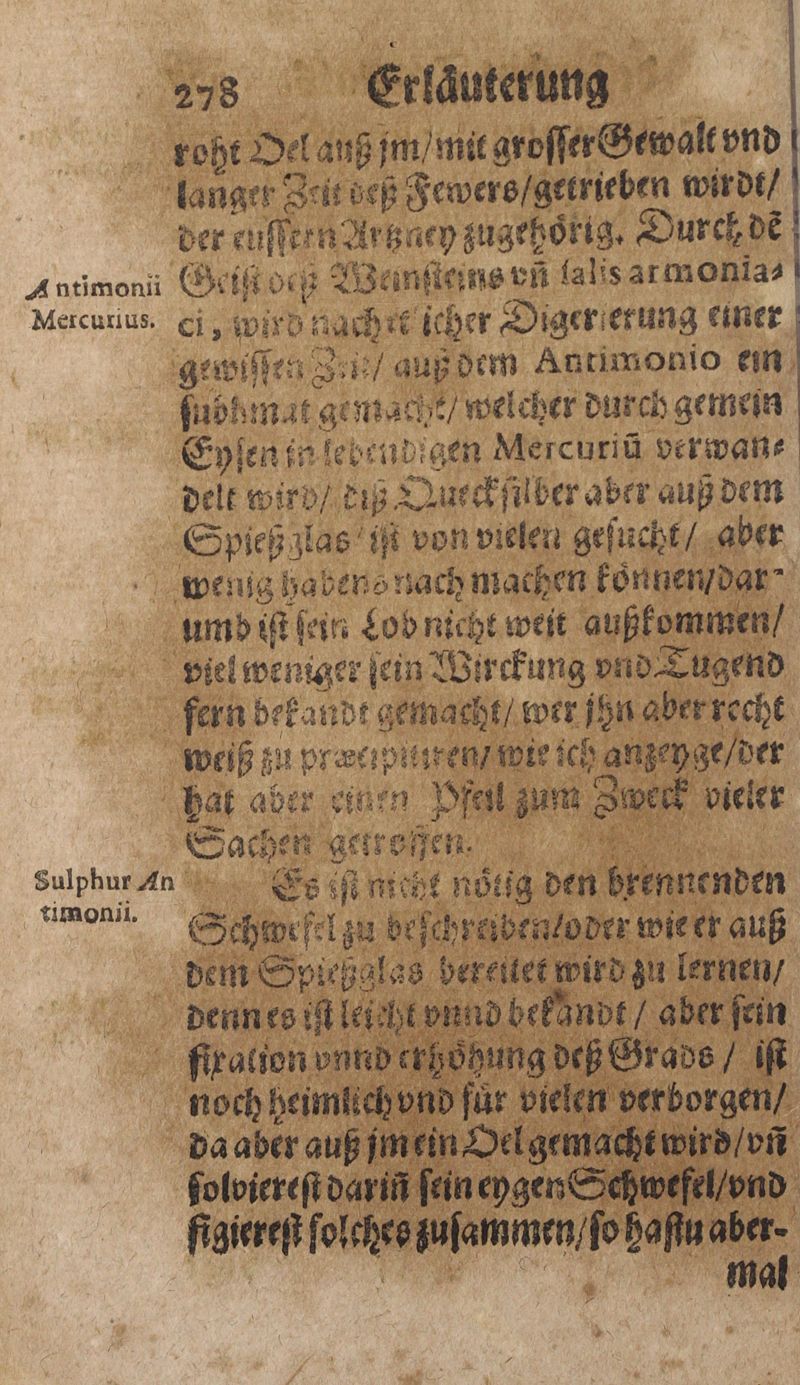 278 Erläuterung
roht Oel auß jm/mit grosser Gewalt vnd
langer Zeit deß Fewers/getrieben wirdt/
der eussern Artzney zugehörig. Durch dē
Antimonii Geist deß Weinsteins vñ salis armonia⸗
Mercurius. ci, wird nach icher Digerierung einer
gewissen Zeit/ auß dem Antimonio ein
sublimat gemacht/ welcher durch gemein
Eysen in lebendigen Mercuriū verwan⸗
delt wird/ diß Quecksilber aber auß dem
Spießglas ist von vielen gesucht/ aber
wenig habens nach machen können/dar⸗
umb ist sein Lob nicht weit außkommen/
viel weniger sein Wirckung vnd Tugend
fern bekandt gemacht/ wer jhn aber recht
weiß zu præcipitiren/ wie ich anzeyge/der
hat aber einen Pfeil zum Zweck vieler
Sachen getroffen.
Sulphur An Es ist nicht nötig den brennenden
timonii. Schwefel zu beschreiben/oder wie er auß
dem Spießglas bereitet wird zu lernen/
denn es ist leicht vnnd bekandt / aber sein
fixation vnnd erhöhung deß Grads / ist
noch heimlich vnd für vielen verborgen/
da aber auß jm ein Oel gemacht wird/vñ
solvierest dariñ sein eygen Schwefel/vnd
figierest solches zusammen/so hastu aber-
mal